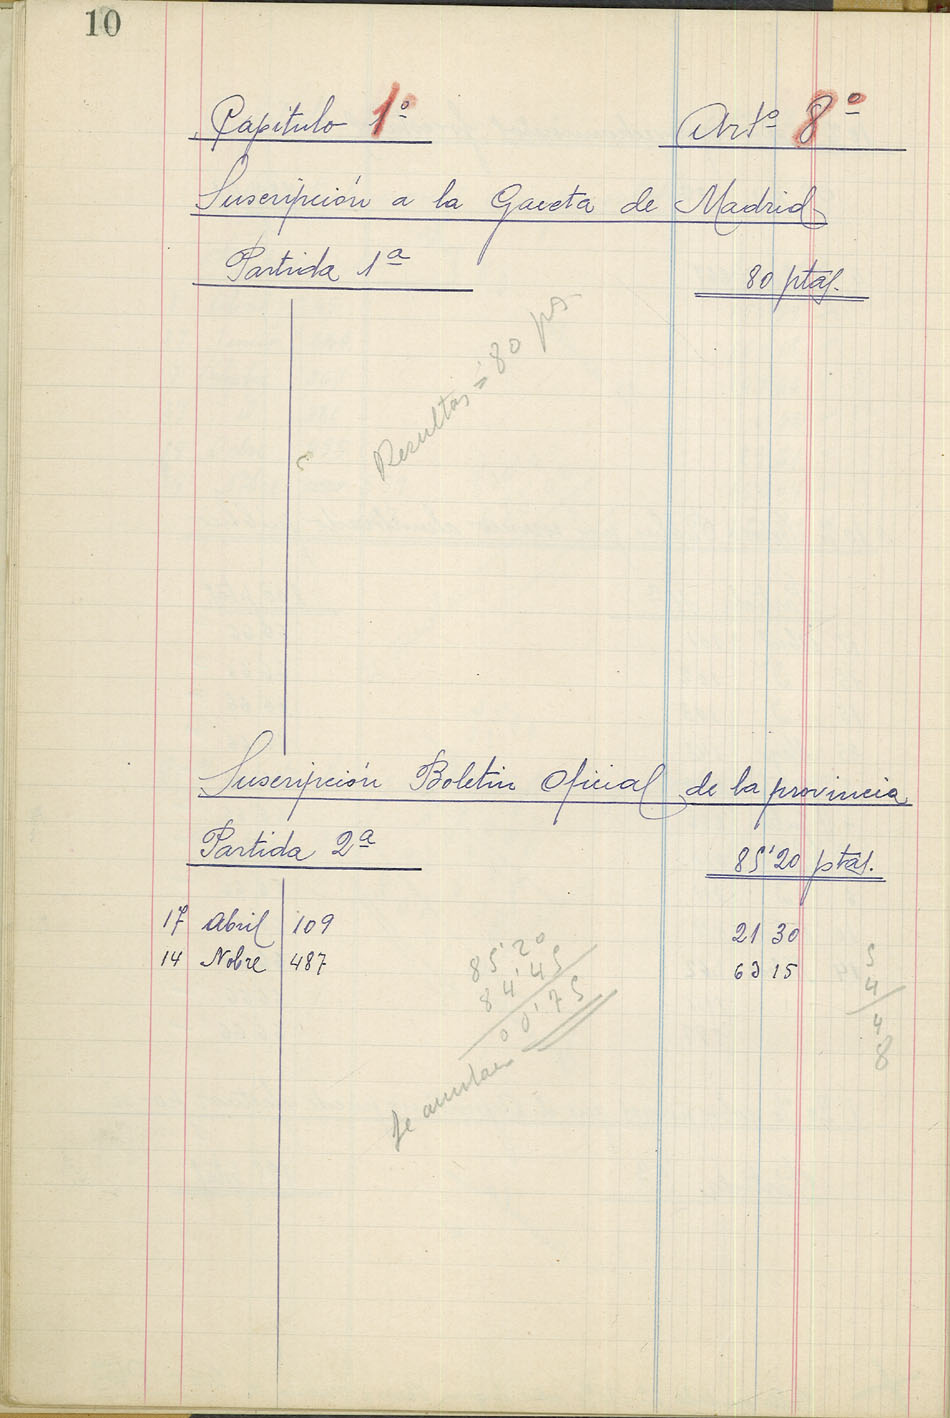 10
Capítulo 1º Artº 8º
Suscripción a la Gaceta de Madrid
Partida 1ª 80 ptas.
Resultas = 80 ps
Suscripción Boletin Oficial de la provincia
Partida 2ª 85'20 ptas.
17 Abril 109 21 30
14 Nobre 487 63 15
85'20
84'45
00'75
Se anulan
5
4
4
8